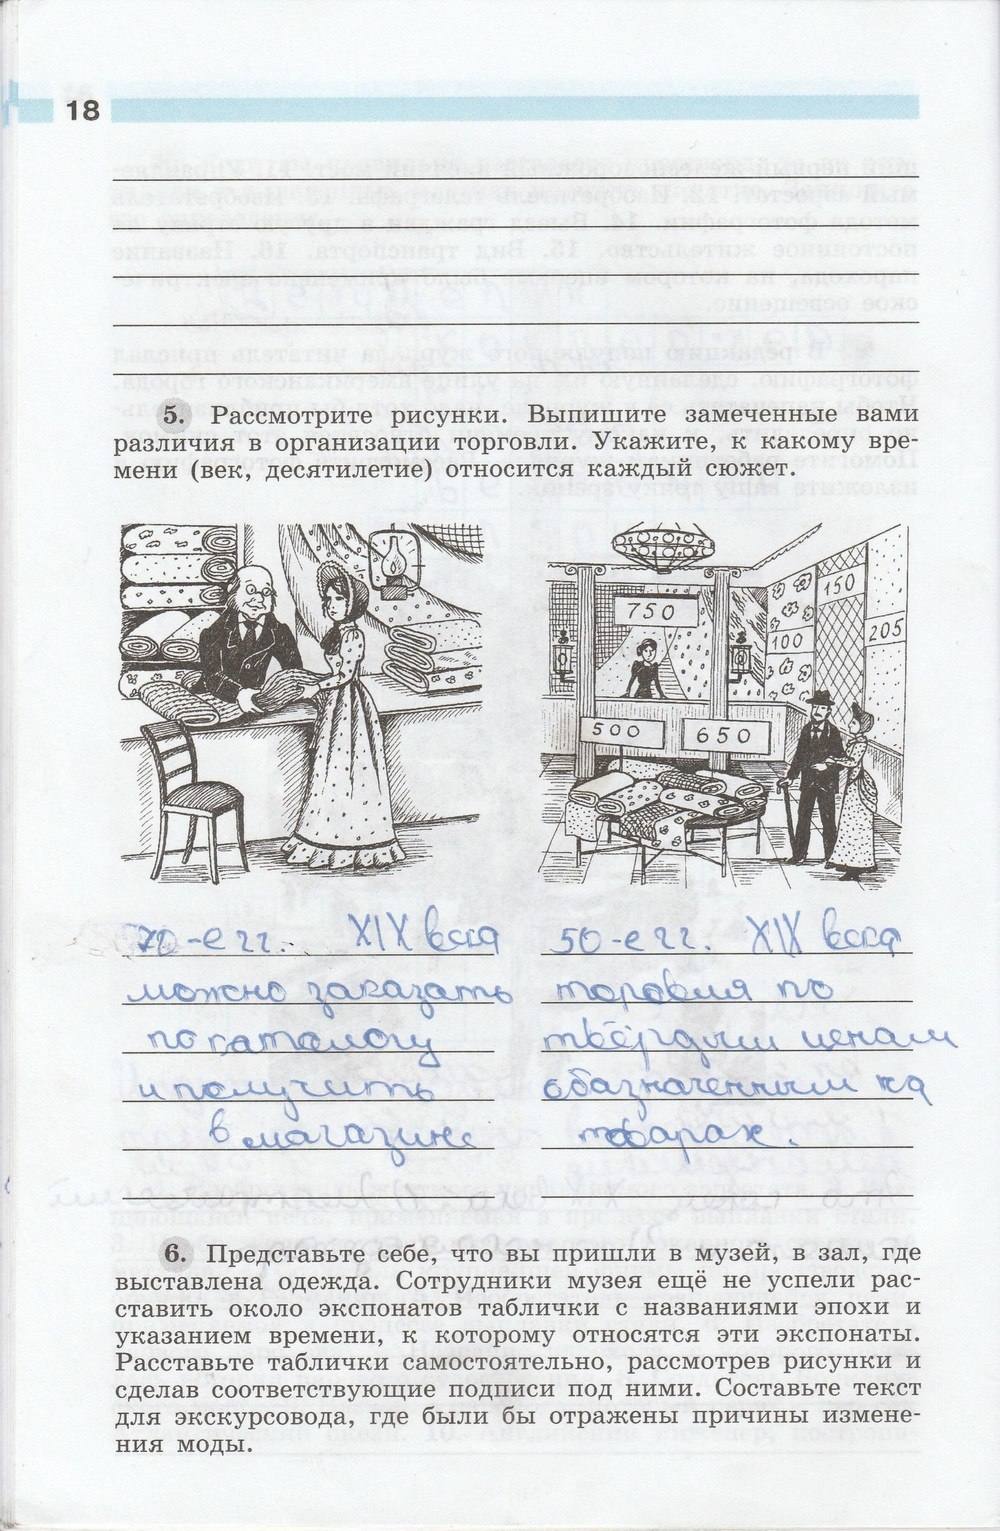 18
5. Рассмотрите рисунки. Выпишите замеченные вами
различия в организации торговли. Укажите, к какому вре-
мени (век, десятилетие) относится каждый сюжет.
750
150
100
205
500
650
70-е гг. XIX века
можно заказать
по каталогу
и получить
в магазине
50-е гг. XIX века
торговля по
твёрдым ценам
обазначенным на
товарах.
6. Представьте себе, что вы пришли в музей, в зал, где
выставлена одежда. Сотрудники музея ещё не успели рас-
ставить около экспонатов таблички с названиями эпохи и
указанием времени, к которому относятся эти экспонаты.
Расставьте таблички самостоятельно, рассмотрев рисунки и
сделав соответствующие подписи под ними. Составьте текст
для экскурсовода, где были бы отражены причины измене-
ния моды.